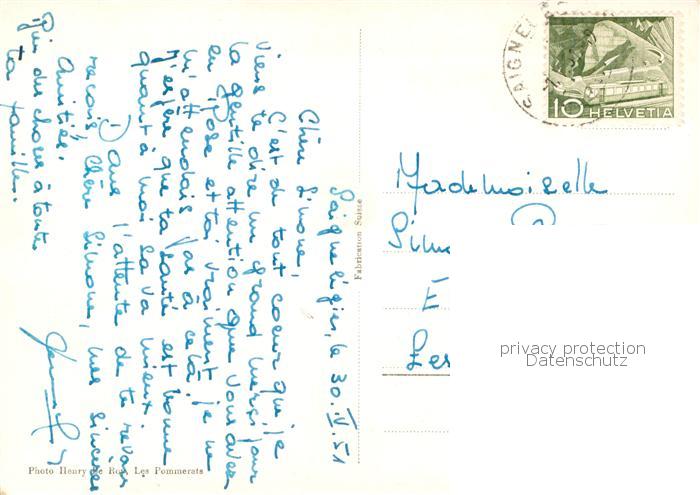 Saignelégier, le 30.IV.51
Chère Simone,
C'est de tout coeur que je
viens te dire un grand merci pour
la gentille attention que vous avez
eu, Rose et toi vraiment je ne
m'attendais pas à cela!
J'espère que ta santé est bonne
quant à moi sa va mieux.
Dans l'attente de te revoir
reçois, Chère Simone, mes sincères
Amitiés.
Bien des choses à toute
ta famille.
Fabrication Suisse
Photo Henry de Roy, Les Pommerats
SAIGNEL
10 HELVETIA
Mademoiselle
Sim
E
Les
privacy protection
Datenschutz